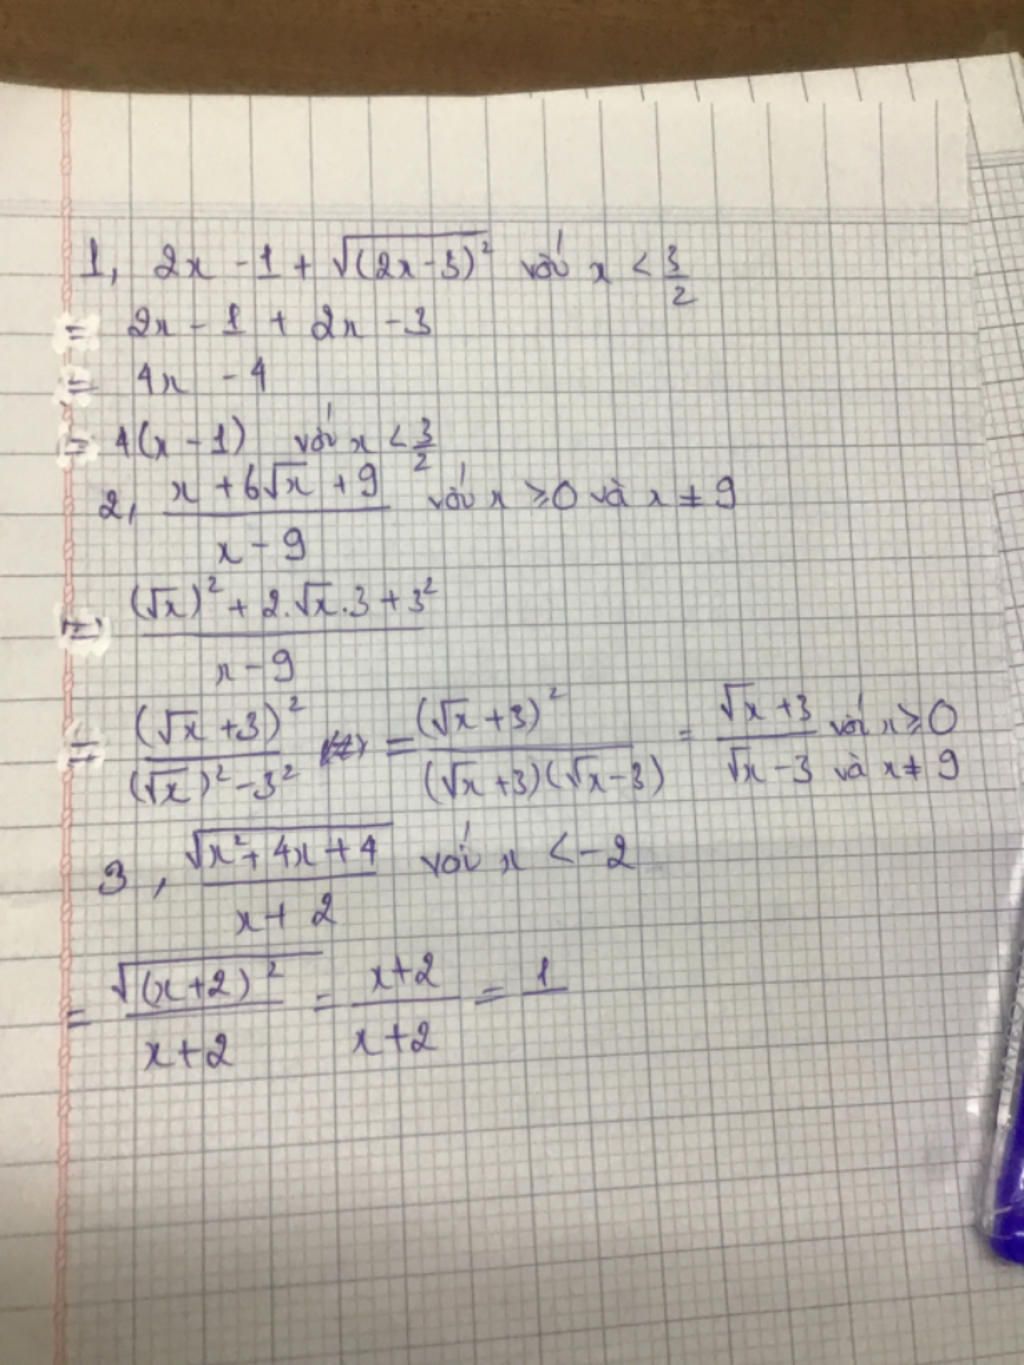 1, 2x - 1 + √(2x-3)² với x < 3/2
= 2x - 1 + 2x - 3
= 4x - 4
= 4(x - 1) với x < 3/2
2, (x + 6√x + 9)/(x - 9) với x ⩾ 0 và x ≠ 9
= ((√x)² + 2.√x.3 + 3²)/(x - 9)
= (√x + 3)²/((√x)² - 3²) = (√x + 3)²/((√x + 3)(√x - 3)) = (√x + 3)/(√x - 3) với x ⩾ 0 và x ≠ 9
3, √(x² + 4x + 4)/(x + 2) với x < -2
= √(x+2)²/(x+2) = (x+2)/(x+2) = 1